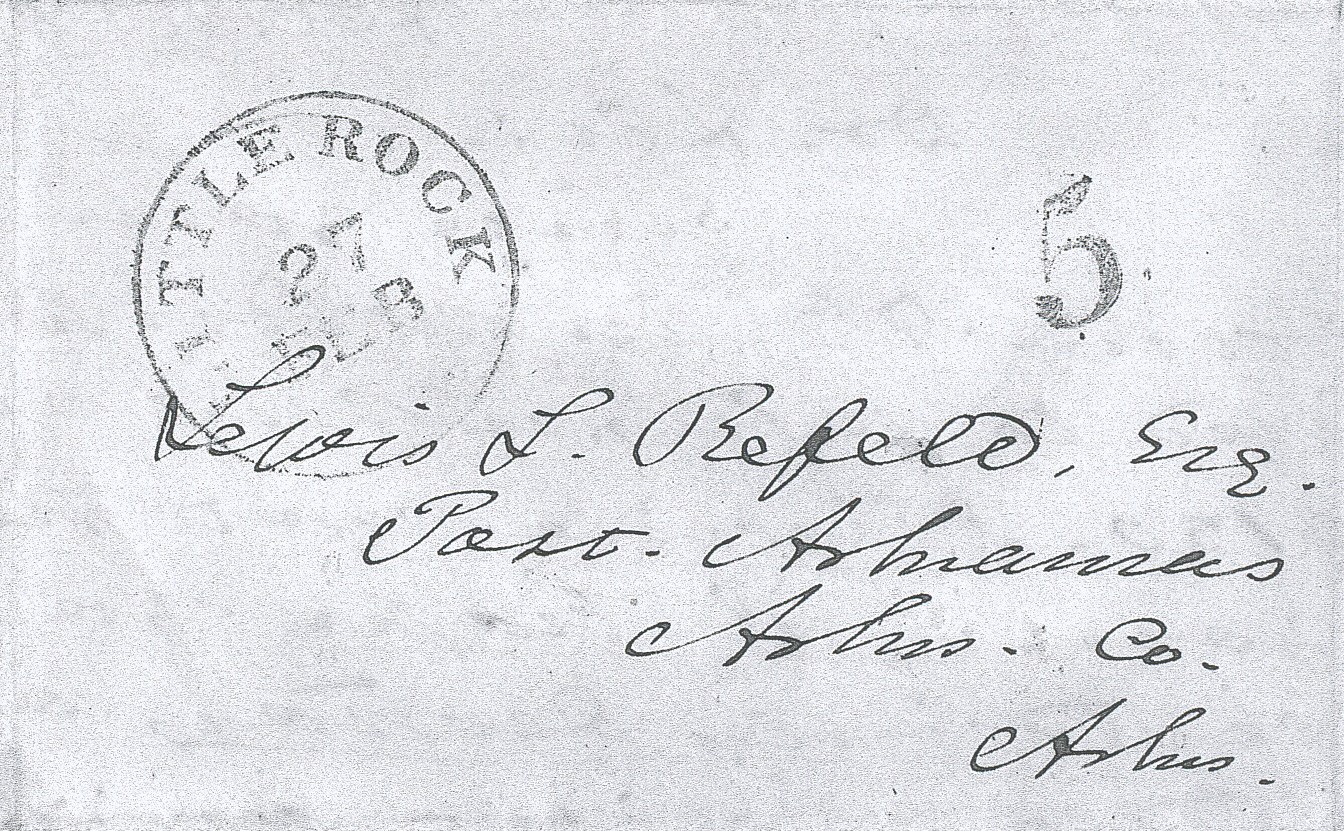 LITTLE ROCK
27
FEB
5
Lewis L. Refeld, Esq.
Post. Arkansas
Arks. Co.
Arks.